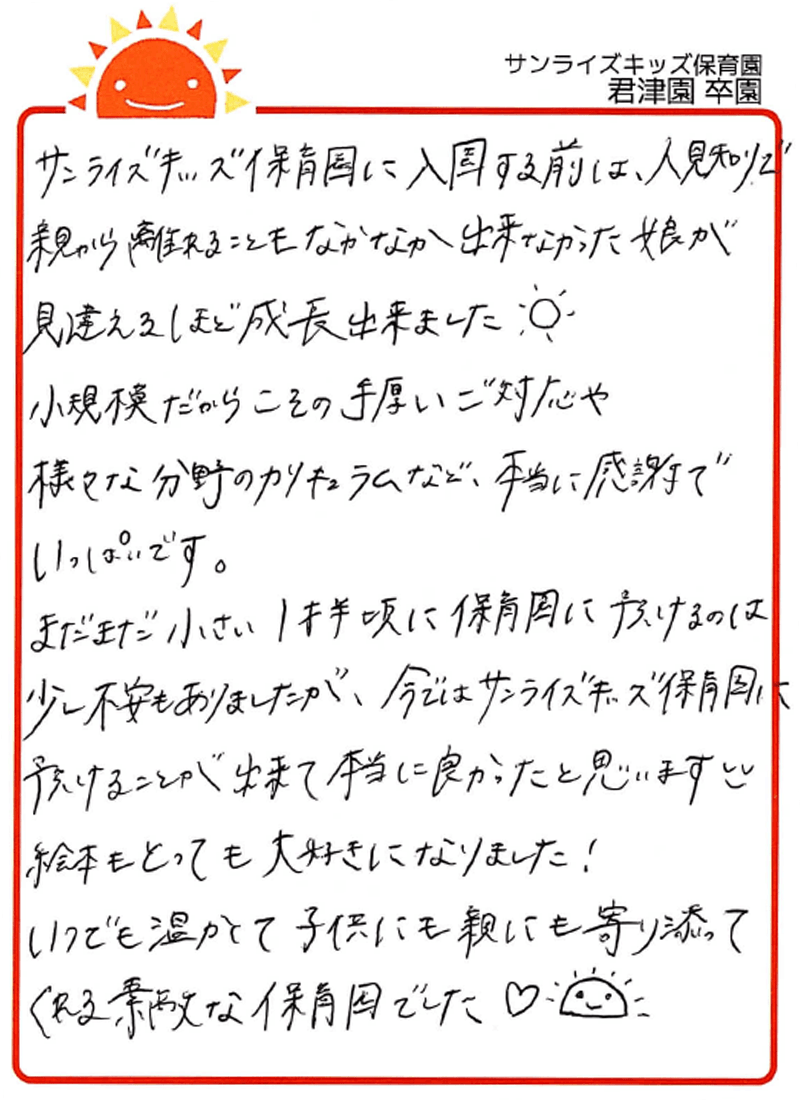 サンライズキッズ保育園
君津園 卒園
サンライズキッズ保育園に入園する前は、人見知りで
親から離れることもなかなか出来なかった娘が
見違えるほど成長出来ました
小規模だからこその手厚いご対応や
様々な分野のカリキュラムなど、本当に感謝で
いっぱいです。
まだまだ小さい1才半頃に保育園に預けるのは
少し不安もありましたが、今ではサンライズキッズ保育園に
預けることが出来て本当に良かったと思います
絵本もとっても大好きになりました!
いつでも温かくて子供にも親にも寄り添って
くれる素敵な保育園でした♡